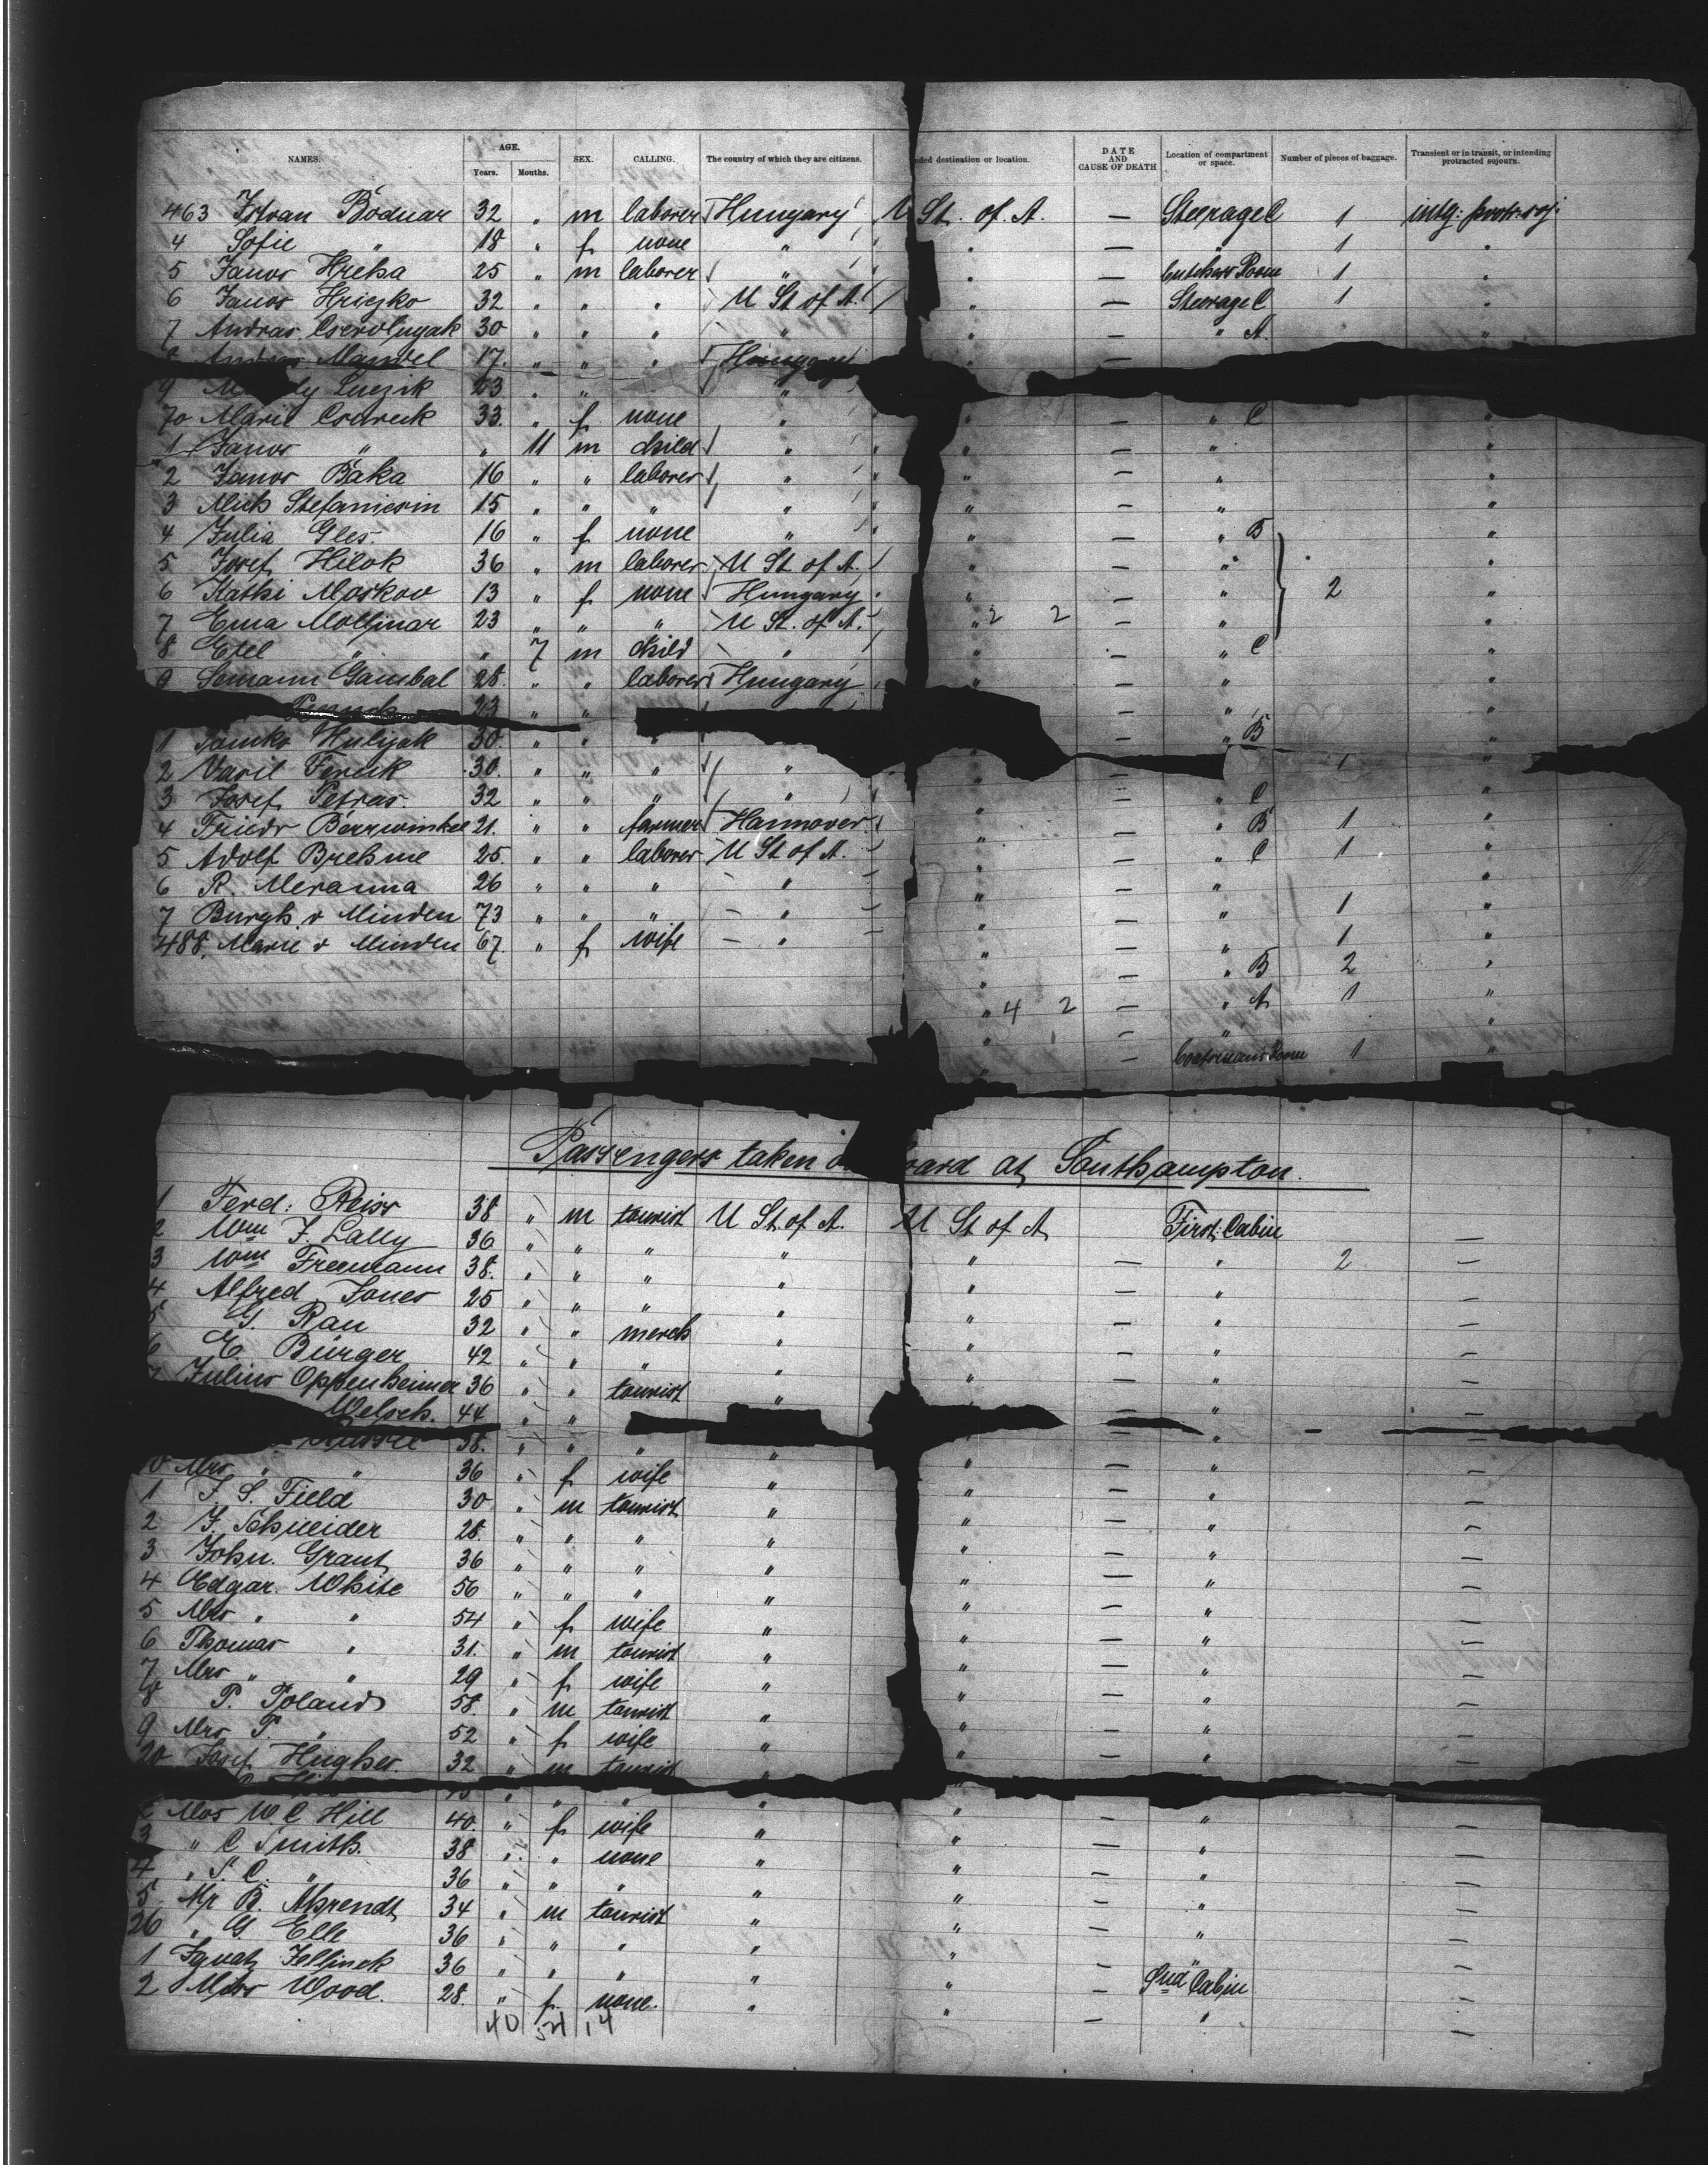 NAMES. AGE. Years. Months. SEX. CALLING. The country of which they are citizens. nded destination or location. DATE AND CAUSE OF DEATH Location of compartment or space. Number of pieces of baggage. Transient or in transit, or intending protracted sojourn.
463 Istvan Bodnar 32 " m laborer Hungary U St. of A. — Steerage C 1 intg: protr: soj:
4 Sofie " 18 " f none " " " — " 1 "
5 Janos Hreha 25 " m laborer " " — Butchers Room 1 "
6 Janos Hriczko 32 " " " U St of A. " — Steerage C 1 "
7 Andras 30 " " " " " — " A. "
Andras Mandel 17. " " " Hungary " —
9 Luczik 23 " " "
70 Marie 33. " f none " " " C "
1 Janos " " 11 m child " " — " "
2 Janos Baka 16 " " laborer " " — " "
3 Mich 15 " " " " " — " "
4 Julia Gles. 16 " f none " " — " B "
5 Josef Hilok 36 " m laborer U St. of A. " — " "
6 Kathi Moskov 13 " f none Hungary " — " 2 "
7 Ema Mollinar 23 " " " U St. of A. " 2 2 — " "
8 Etel " " 7 m child " " — " C "
9 Gambal 28. " " laborer Hungary " — " "
23 " " " — " "
1 Hulijak 30. " " " " — " B "
2 Vasil 30. " " " " — 1 "
3 Josef Petras 32 " " " " — " C "
4 Friedr Barrwinkel 21. " " farmer Hannover " — " B 1 "
5 Adolf Brehme 25. " " laborer U St of A. " — " C 1 "
6 R. Meranna 26 " " " " " — " "
7 Burgh v Minden 73 " " " " " — " 1 "
488. Marie v Minden 67. " f wife " " — " 1 "
" — " B 2 "
" 4 2 — " A 1 "
" — " "
" — Room 1 "
Passengers taken oard at Southampton.
1 Ferd: Reiss 38 " m tourist U St. of A. U St of A First: Cabin —
2 Wm F. Lally 36 " " " " " — " 2 —
3 Wm Freemann 38. " " " " " — " —
4 Alfred Jones 25 " " " " " — " —
5 G. Rau 32 " " merch " " — " —
6 E. Bürger 42 " " " " " — " —
7 Julius Oppenheimer 36 " " tourist " " — " —
Welsch. 44 " "
38. " " " " " "
10 Mrs " " 36 " f wife " " — " —
1 F. S. Field 30 " m tourist " " — " —
2 J. Schneider 28. " " " " " — " —
3 John. Grant 36 " " " " " — " —
4 Edgar. White 56 " " " " " — " —
5 Mrs " " 54 " f wife " " — " —
6 Thomas " 31. " m tourist " " — " —
7 Mrs " " 29 " f wife " " — " —
8 P. Poland 58. " m tourist " " — " —
9 Mrs P. " 52 " f wife " " — " —
20 Josef Hughes. 32 " m tourist " " — " —
" " " " "
2 Mrs W. C Hill 40. " f wife " " — " —
3 " C Smith. 38 " " none " " — " —
4 " S. C. " 36 " " " " " — " —
5 Mr B. Ahrendt 34 " m tourist " " — " —
26 " G. Elle 36 " " " " " — " —
1 Ignatz Jellinek 36 " " " " " — 2nd Cabin —
2 Miss Wood. 28. " f none. " " — " —
40 14